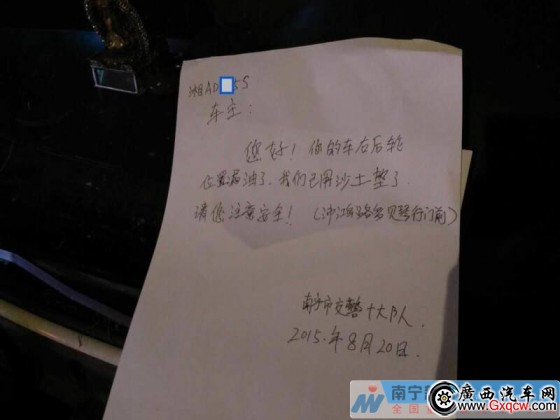 湘AD 5S
车主:
您好! 你的车右后轮
位置漏油了, 我们已用沙土垫了.
请您注意安全! (沙江路 贝琴行门前)
南宁市交警十大队
2015.年8月20日.
南宁
全国
廣西汽车网
www.Gxqcw.com